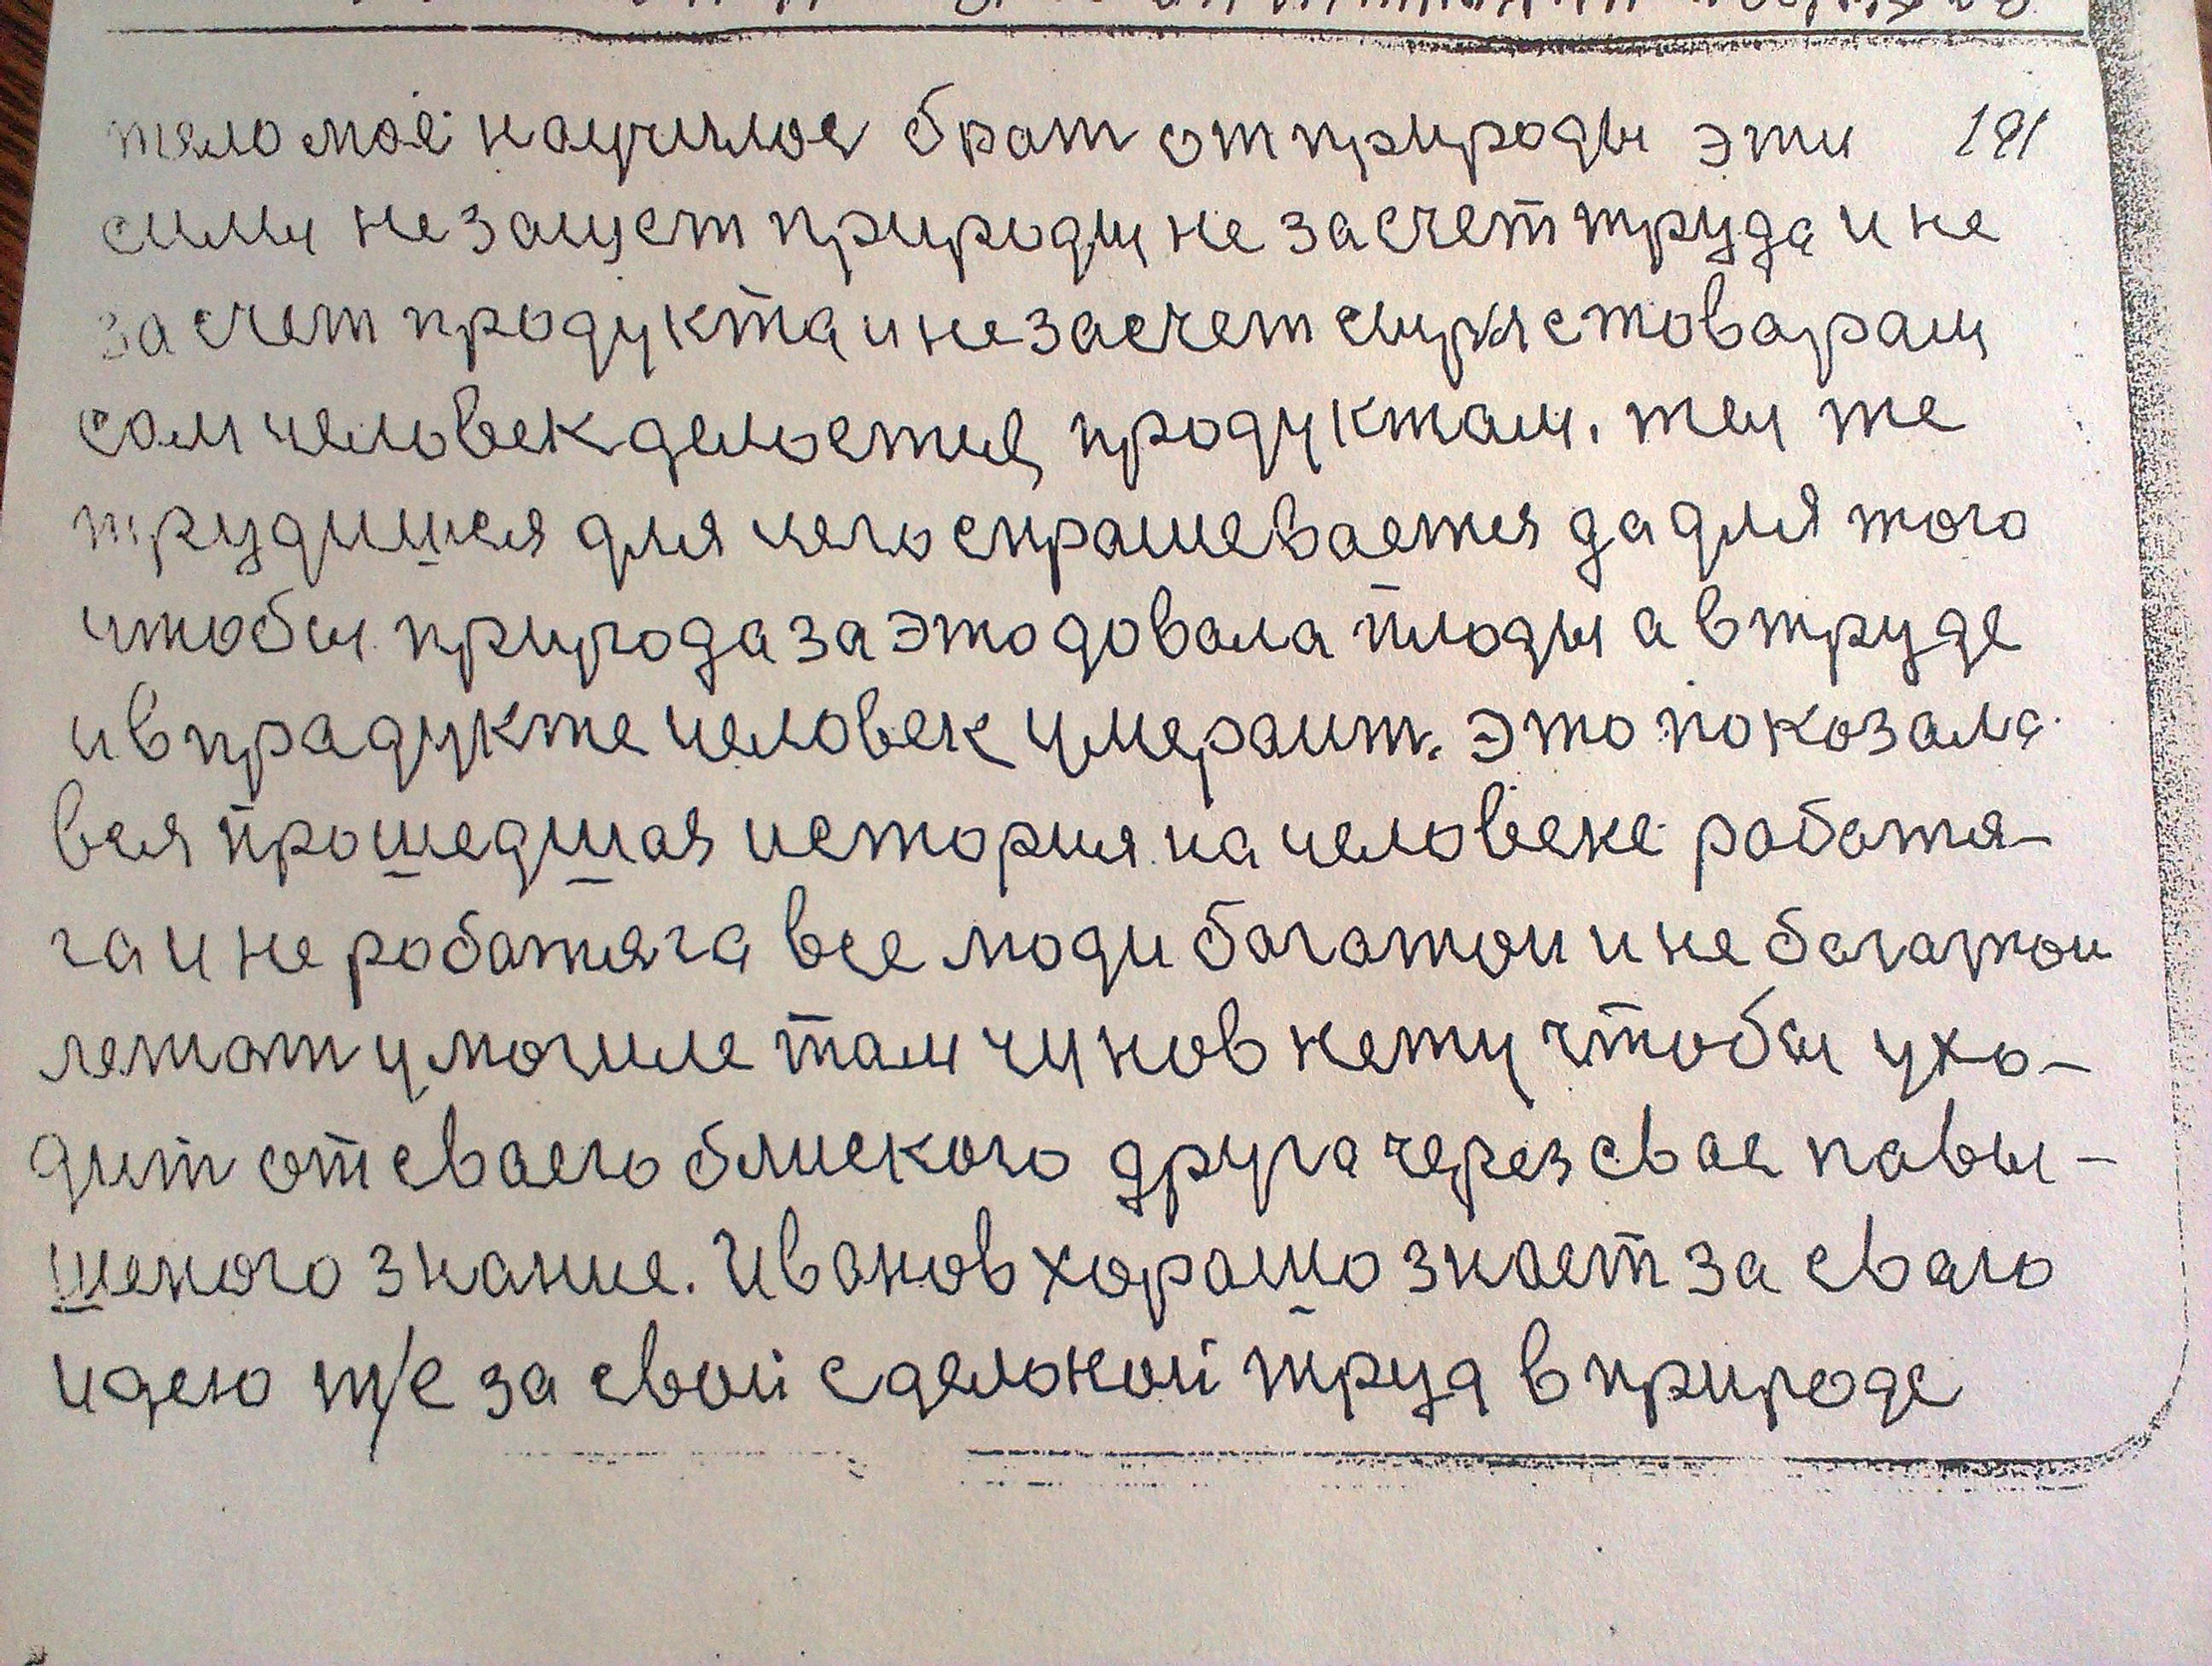 тело моё научилос брат от природы эти 191
силы не защет природы не за счет труда и не
за счет продукта и не за счет сиряс товарам
сам человек делается продуктам. тем же
трудишся для чего спрашевается да для того
чтобы природа за это довала плоды а в труде
и в прадукте человек умераит. это показала
вся прошедшая история на человеке работя-
га и не работяга все люди багатои и не багатои
лежат у могиле там чинов нету чтобы ухо-
дит от сваего блиского друга через свае павы-
шеного знание. Иванов хорашо знает за сваю
идею т/е за свой сделоной труд в природе